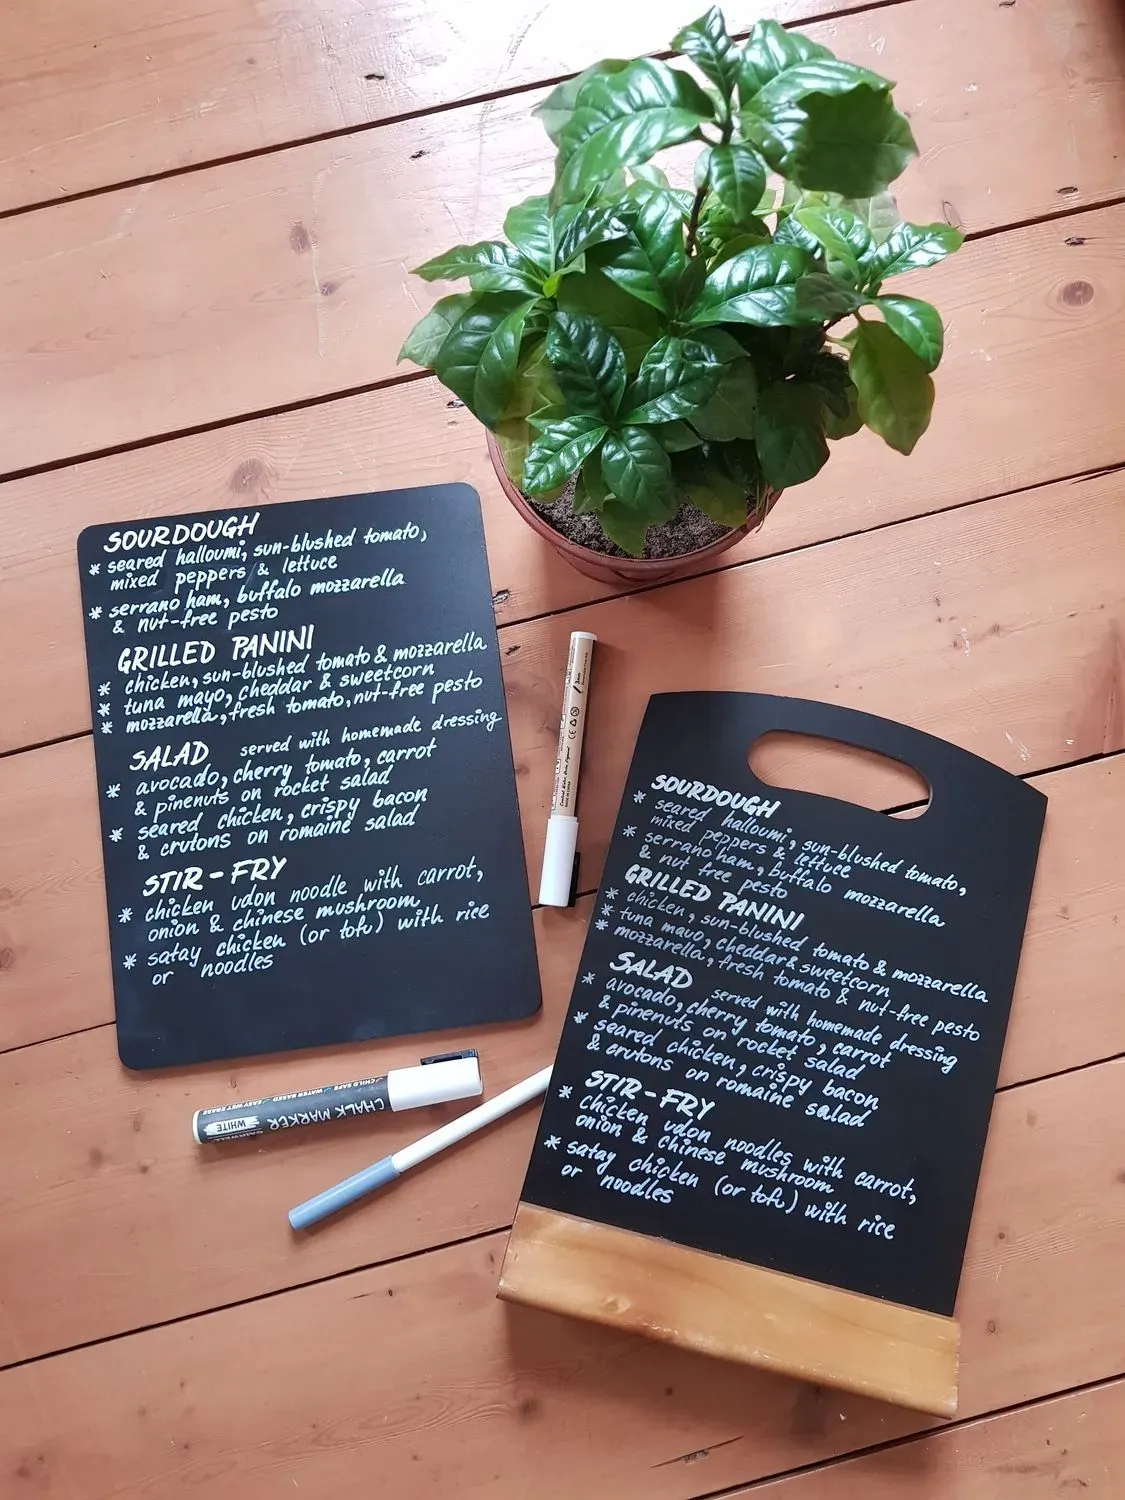 SOURDOUGH
* seared halloumi, sun-blushed tomato,
mixed peppers & lettuce
* serrano ham, buffalo mozzarella
& nut-free pesto
GRILLED PANINI
* chicken, sun-blushed tomato & mozzarella
* tuna mayo, cheddar & sweetcorn
* mozzarella, fresh tomato, nut-free pesto
SALAD served with homemade dressing
* avocado, cherry tomato, carrot
& pinenuts on rocket salad
* seared chicken, crispy bacon
& crutons on romaine salad
STIR-FRY
* chicken udon noodle with carrot,
onion & chinese mushroom
* satay chicken (or tofu) with rice
or noodles
SOURDOUGH
* seared halloumi, sun-blushed tomato,
mixed peppers & lettuce
* serrano ham, buffalo mozzarella
& nut free pesto
GRILLED PANINI
* chicken, sun-blushed tomato & mozzarella
* tuna mayo, cheddar & sweetcorn
* mozzarella, fresh tomato & nut-free pesto
SALAD served with homemade dressing
* avocado, cherry tomato, carrot
& pinenuts on rocket salad
* seared chicken, crispy bacon
& crutons on romaine salad
STIR-FRY
* chicken udon noodles with carrot,
onion & chinese mushroom
* satay chicken (or tofu) with rice
or noodles
CHALK MARKER
WHITE
✓CHILD SAFE ✓WATER BASED ✓EASY WET ERASE